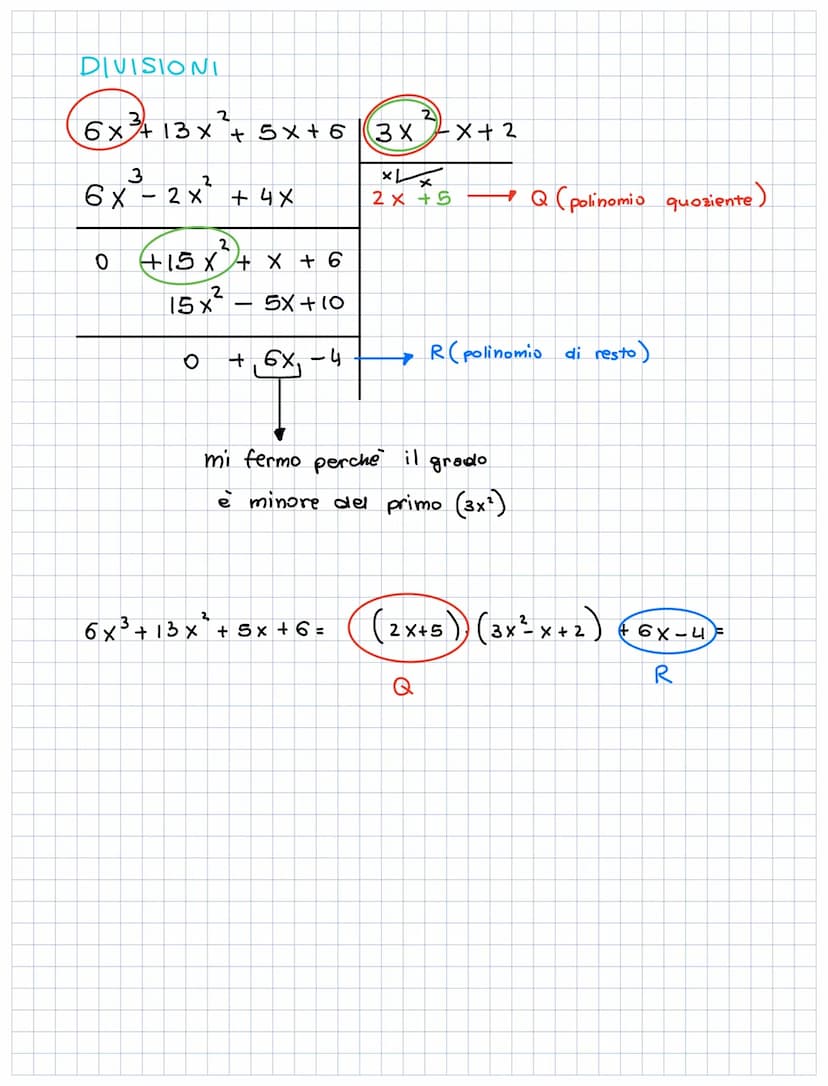 DIVISIONI
6x³ + 13x² + 5x + 6 | 3x² - x + 2
6x³ - 2x² + 4x
2x + 5 → Q (polinomio quoziente)
0 + 15x² + x + 6
15x² - 5x + 10
0 + 6x - 4 → R (polinomio di resto)
mi fermo perchè il grado
è minore del primo (3x²)
6x³ + 13x² + 5x + 6 = (2x+5) · (3x² - x + 2) + 6x - 4 =
Q R